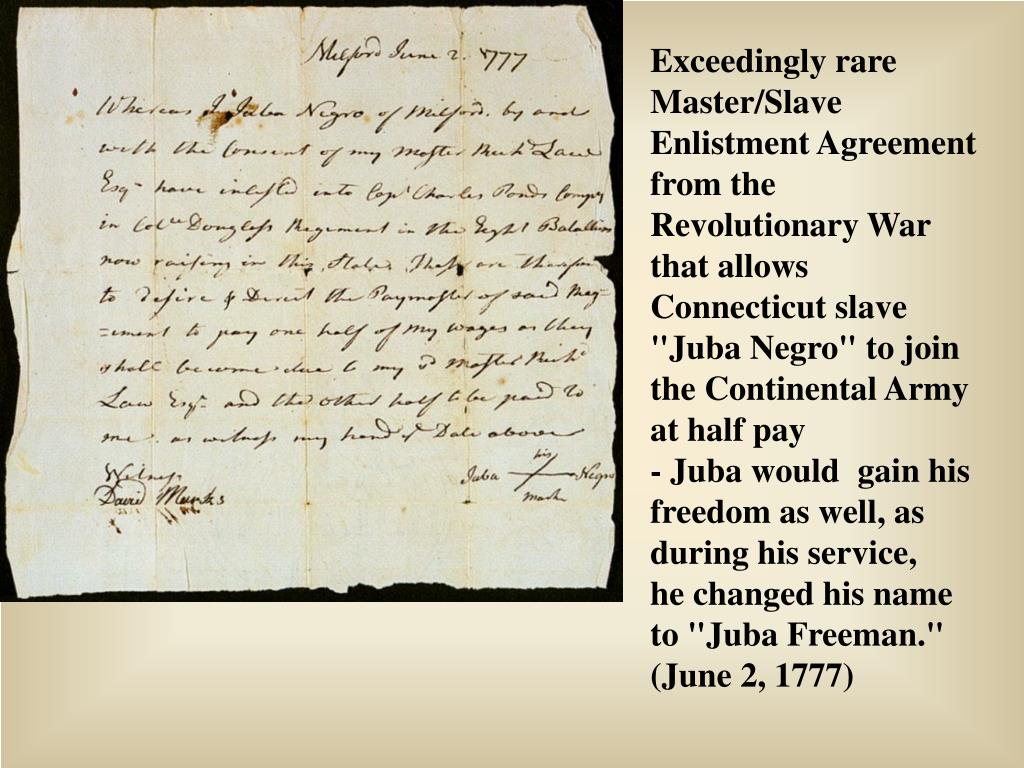 Milford June 2. 1777
Whereas I Juba Negro of Milford. by and
with the Consent of my Master Richd Law
Esqr have inlisted into Capt Charles Ponds Compy
in Coll Douglass Regement in the Eight Batallion
now raising in this State, These are therefore
to desire & Direct the Paymaster of said Reg-
=ement to pay one half of my wages as they
shall become due to my sd Master Richd
Law Esqr and the other half to be paid to
me. as witness my hand ye Date above
Witness
David Marks
his
Juba Negro
mark
Exceedingly rare
Master/Slave
Enlistment Agreement
from the
Revolutionary War
that allows
Connecticut slave
"Juba Negro" to join
the Continental Army
at half pay
- Juba would  gain his
freedom as well, as
during his service,
he changed his name
to "Juba Freeman."
(June 2, 1777)